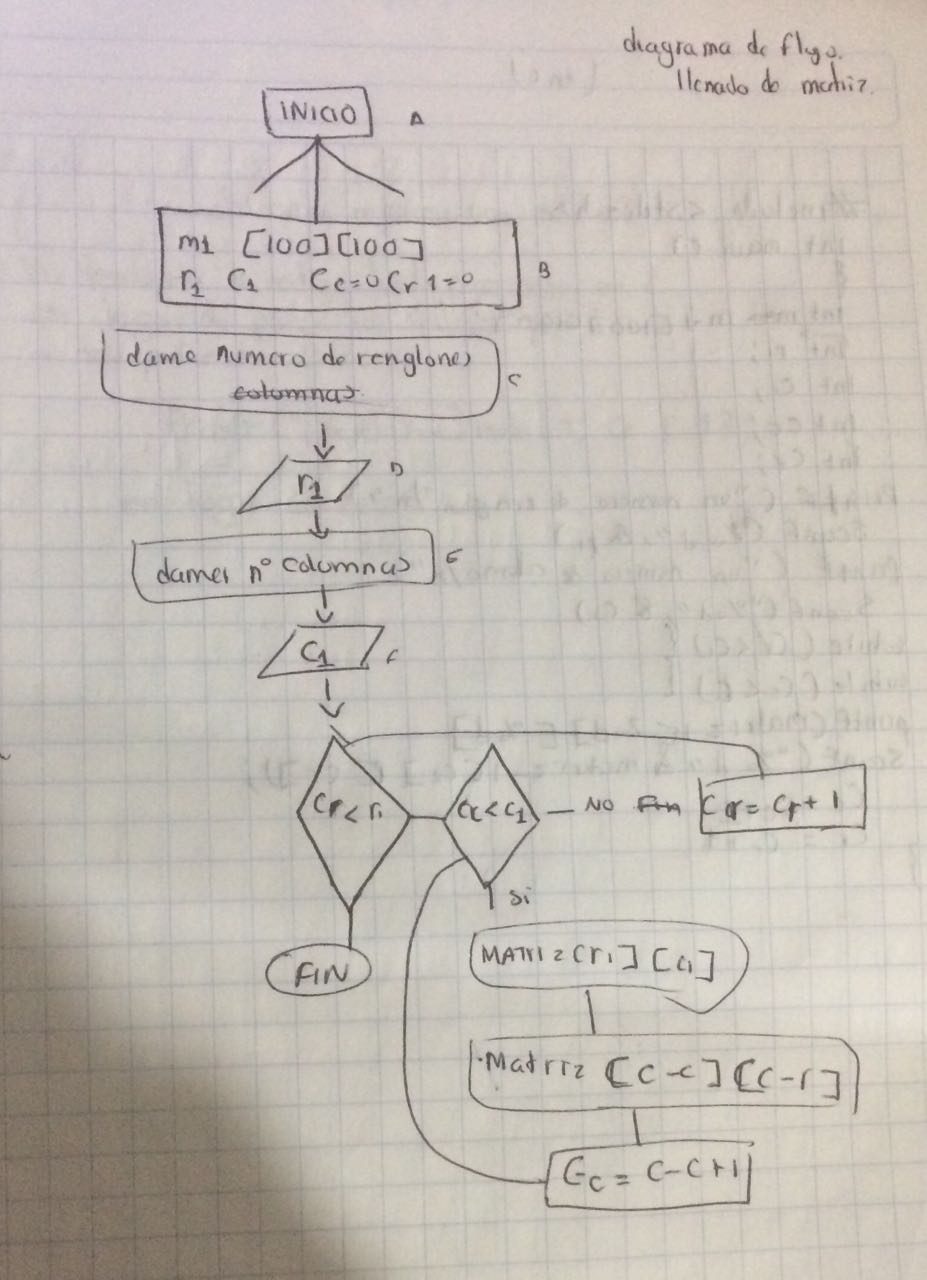 diagrama de flujo.
llenado de matriz.
INICIO A
m1 [100][100]
r1 C1 Cc=0 Cr1=0 B
dame numero de renglones C
columnas
r1 D
dame n° columnas E
C1 F
Cr<r1 Cc<c1 NO Fin Cr= Cr+1
Si
FIN
MATriz [r1] [c1]
Matriz [c-c] [c-r]
Cc= c-c+1